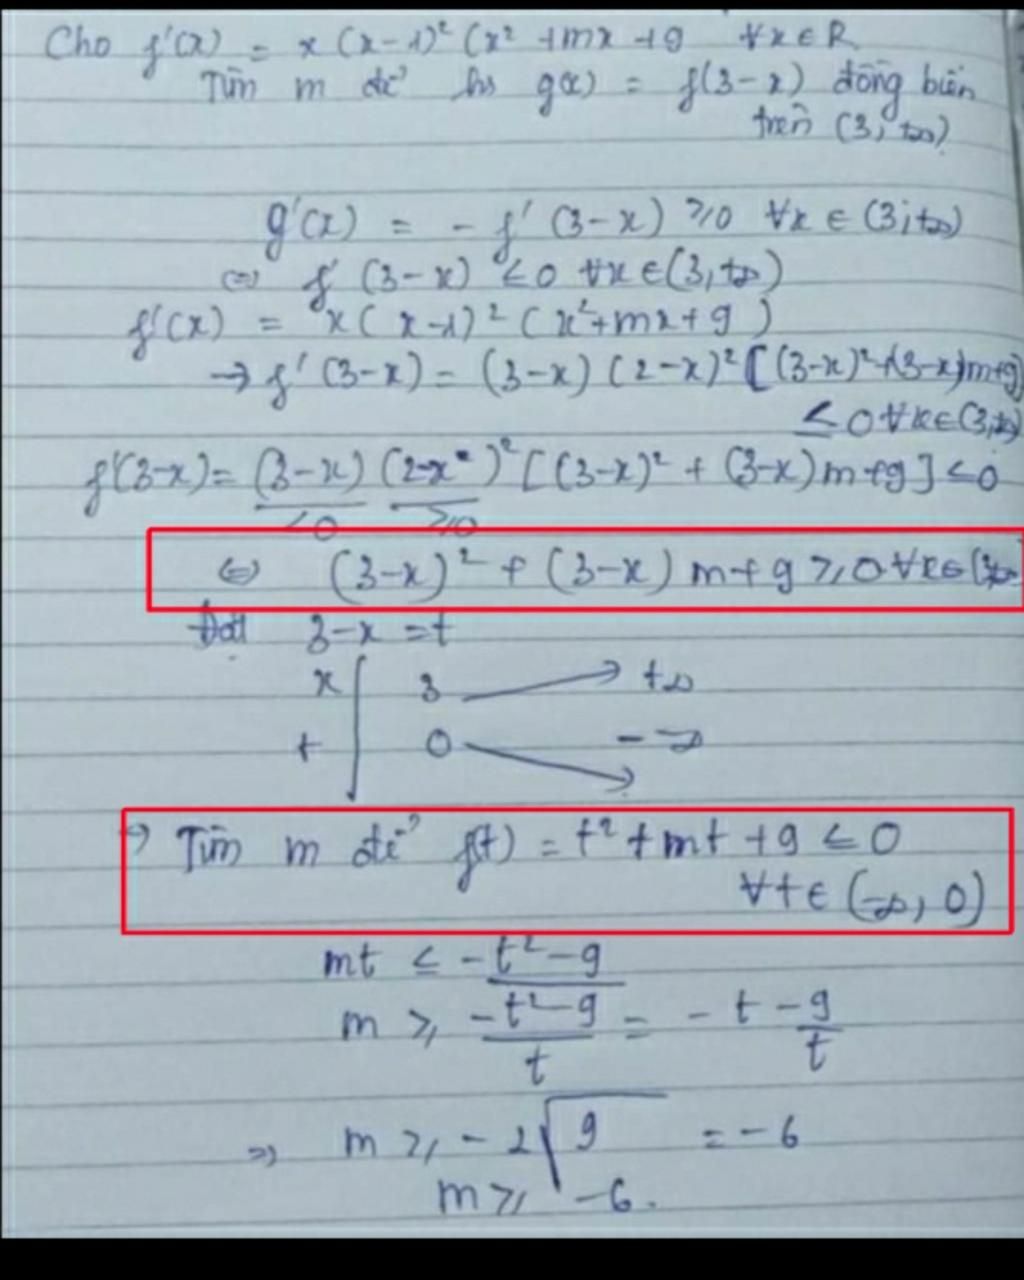 Cho f'(x) = x (x-1)² (x² + mx + 9 ∀x ∈ R
Tìm m để hs g(x) = f(3-x) đồng biến
trên (3, +∞)
g'(x) = - f' (3-x) ⩾0 ∀x ∈ (3;+∞)
⇔ f' (3-x) ≤0 ∀x∈(3,+∞)
f'(x) = x( x-1)² ( x²+mx+9 )
→ f' (3-x) = (3-x) (2-x)² [(3-x)²+(3-x)m+9]
≤ 0 ∀x∈(3,+∞
f'(3-x)= (3-x) (2-x )² [(3-x)² + (3-x)m+9] ≤0
<0 ⩾0
⇔ (3-x)² + (3-x) m+9 ⩾0 ∀x∈(3,+∞
Đặt 3-x =t
x 3 +∞
t 0 -∞
→ Tìm m để f(t) = t² + mt + 9 ≤ 0
∀t∈ (-∞, 0)
mt ≤ -t²-9
m ⩾ \frac{-t²-9}{t} = - t - \frac{9}{t}
⇒ m ⩾ - 2√9 = -6
m ⩾ -6.